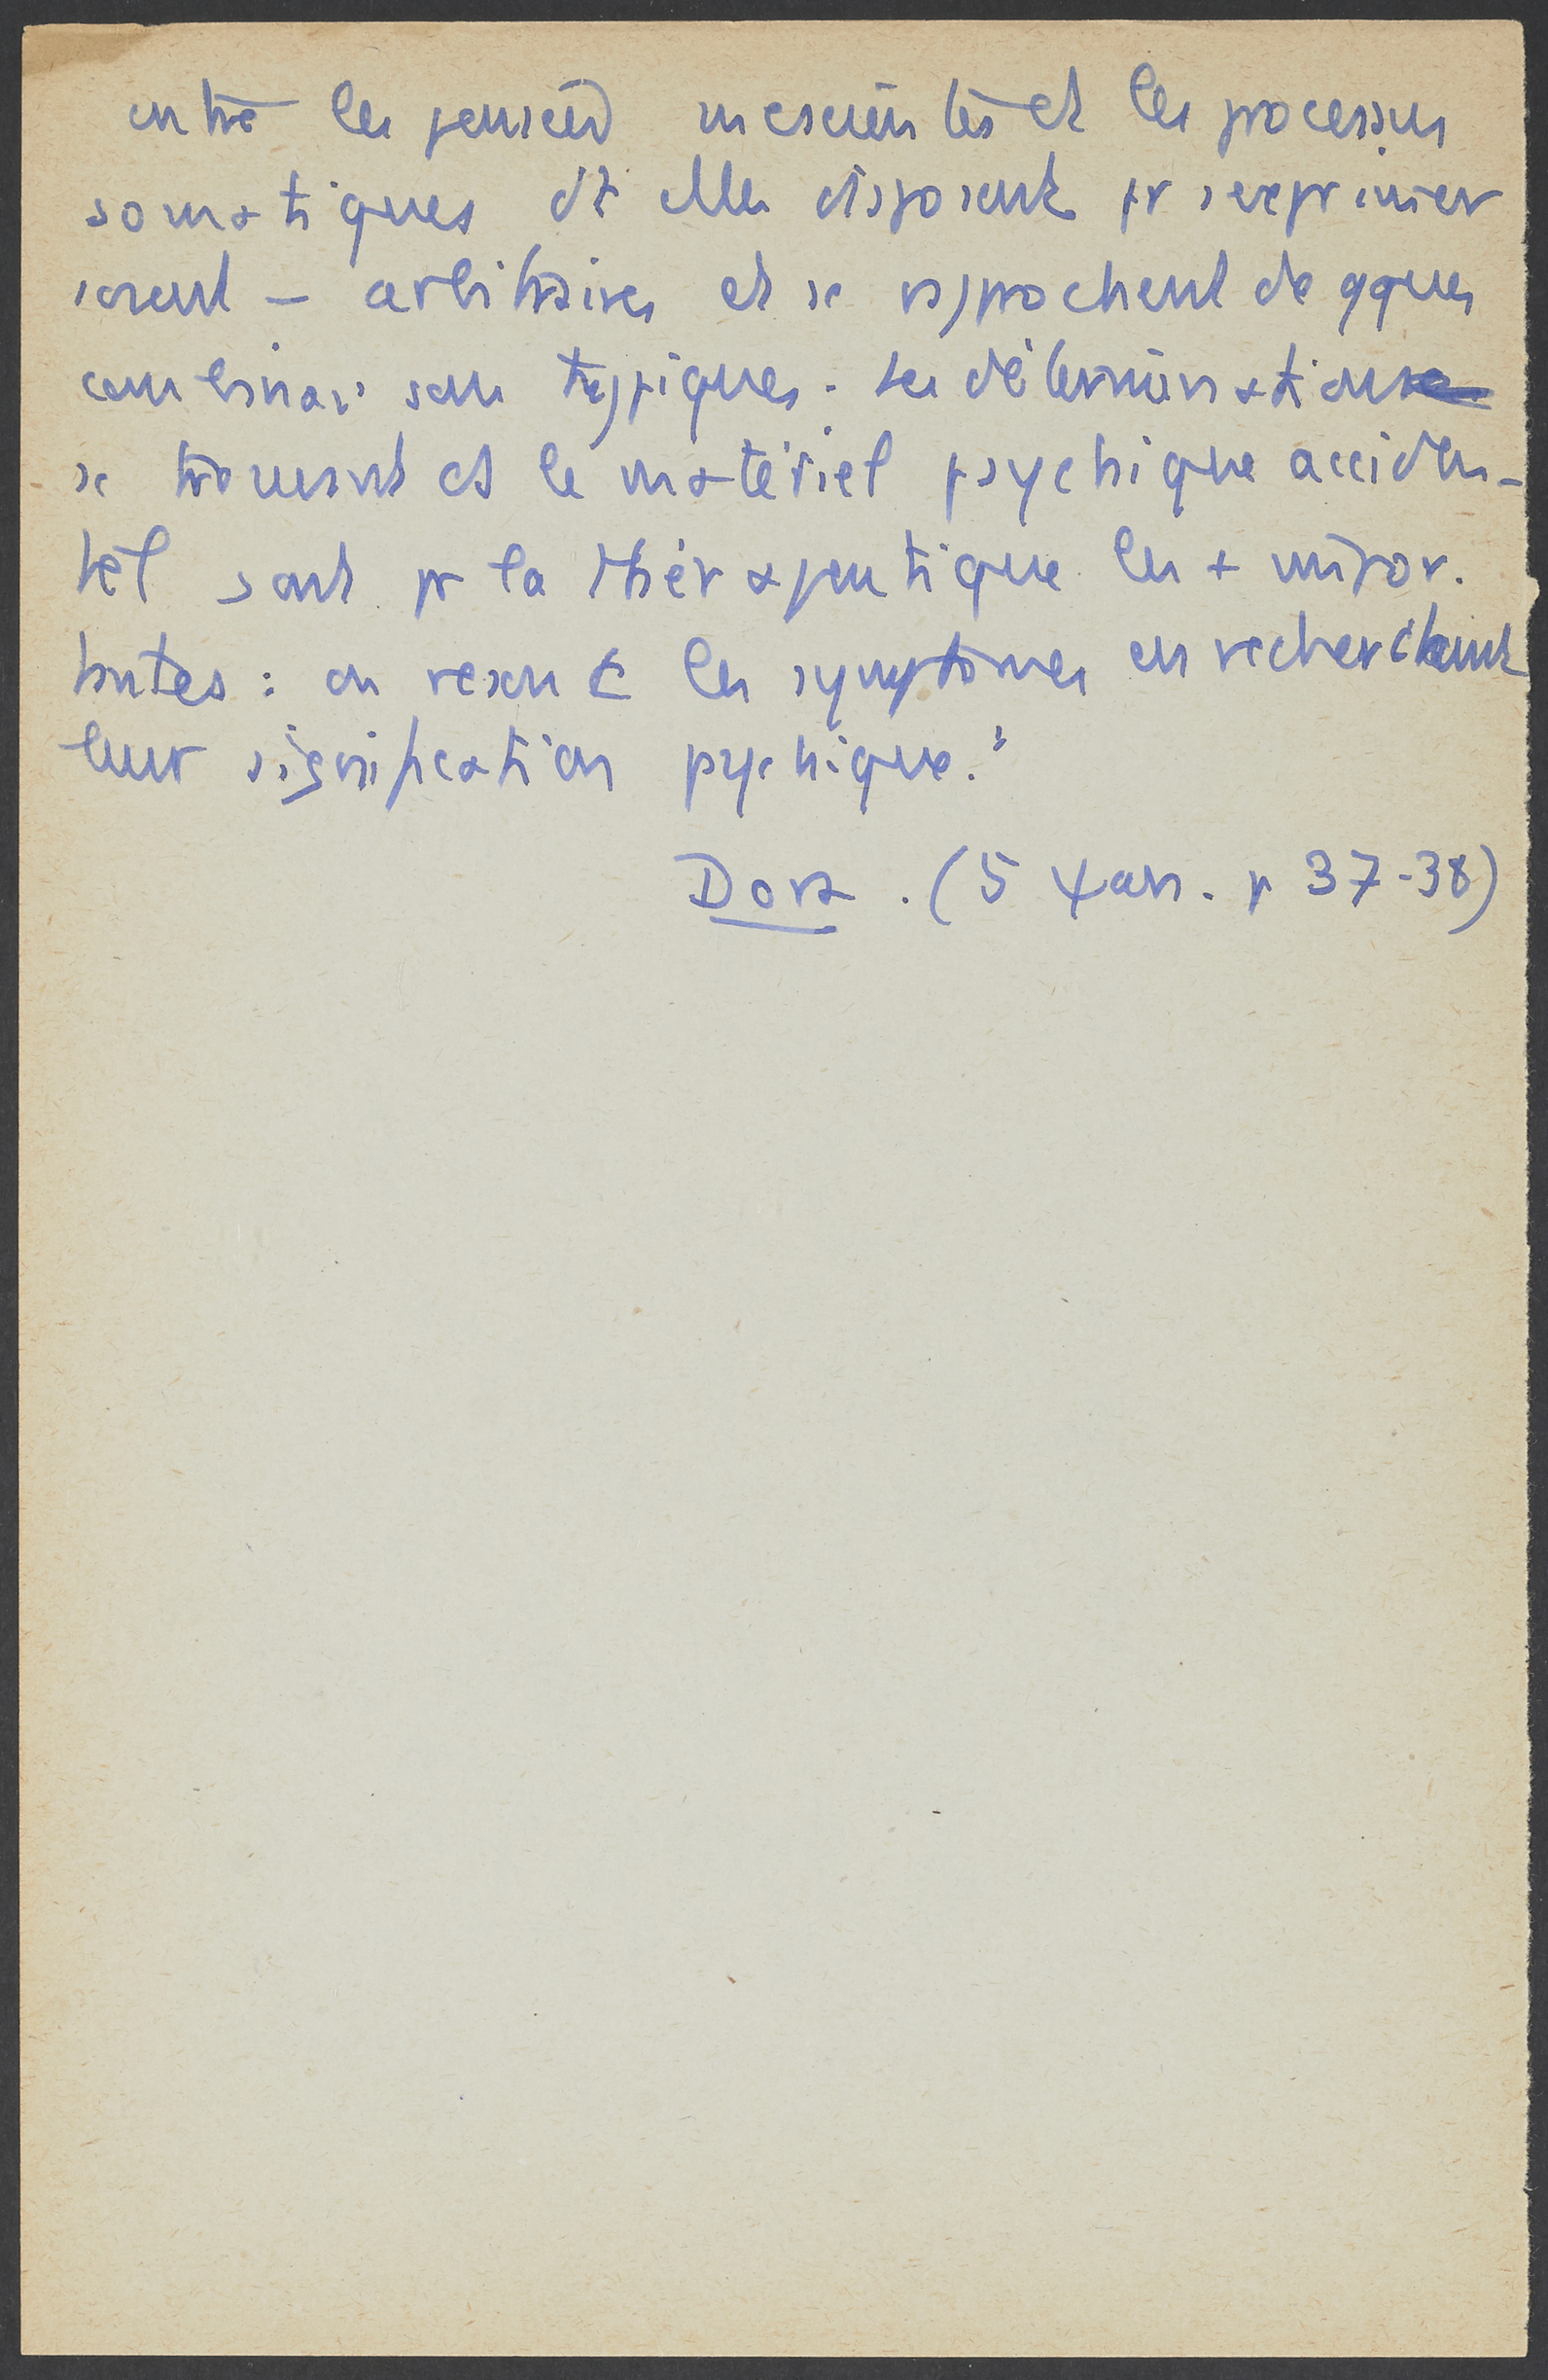 entre les pensées inconscientes et les processus
somatiques dt elles disposent pr s'exprimer
soient – arbitraires et se rapprochent de qques
combinaisons typiques. Les déterminations
se trouvant ds le matériel psychique acciden-
tel sont pr la thérapeutique les + impor-
tantes : on résout les symptômes en recherchant
leur signification psychique."
Dora. (5 Ψan. p 37-38)